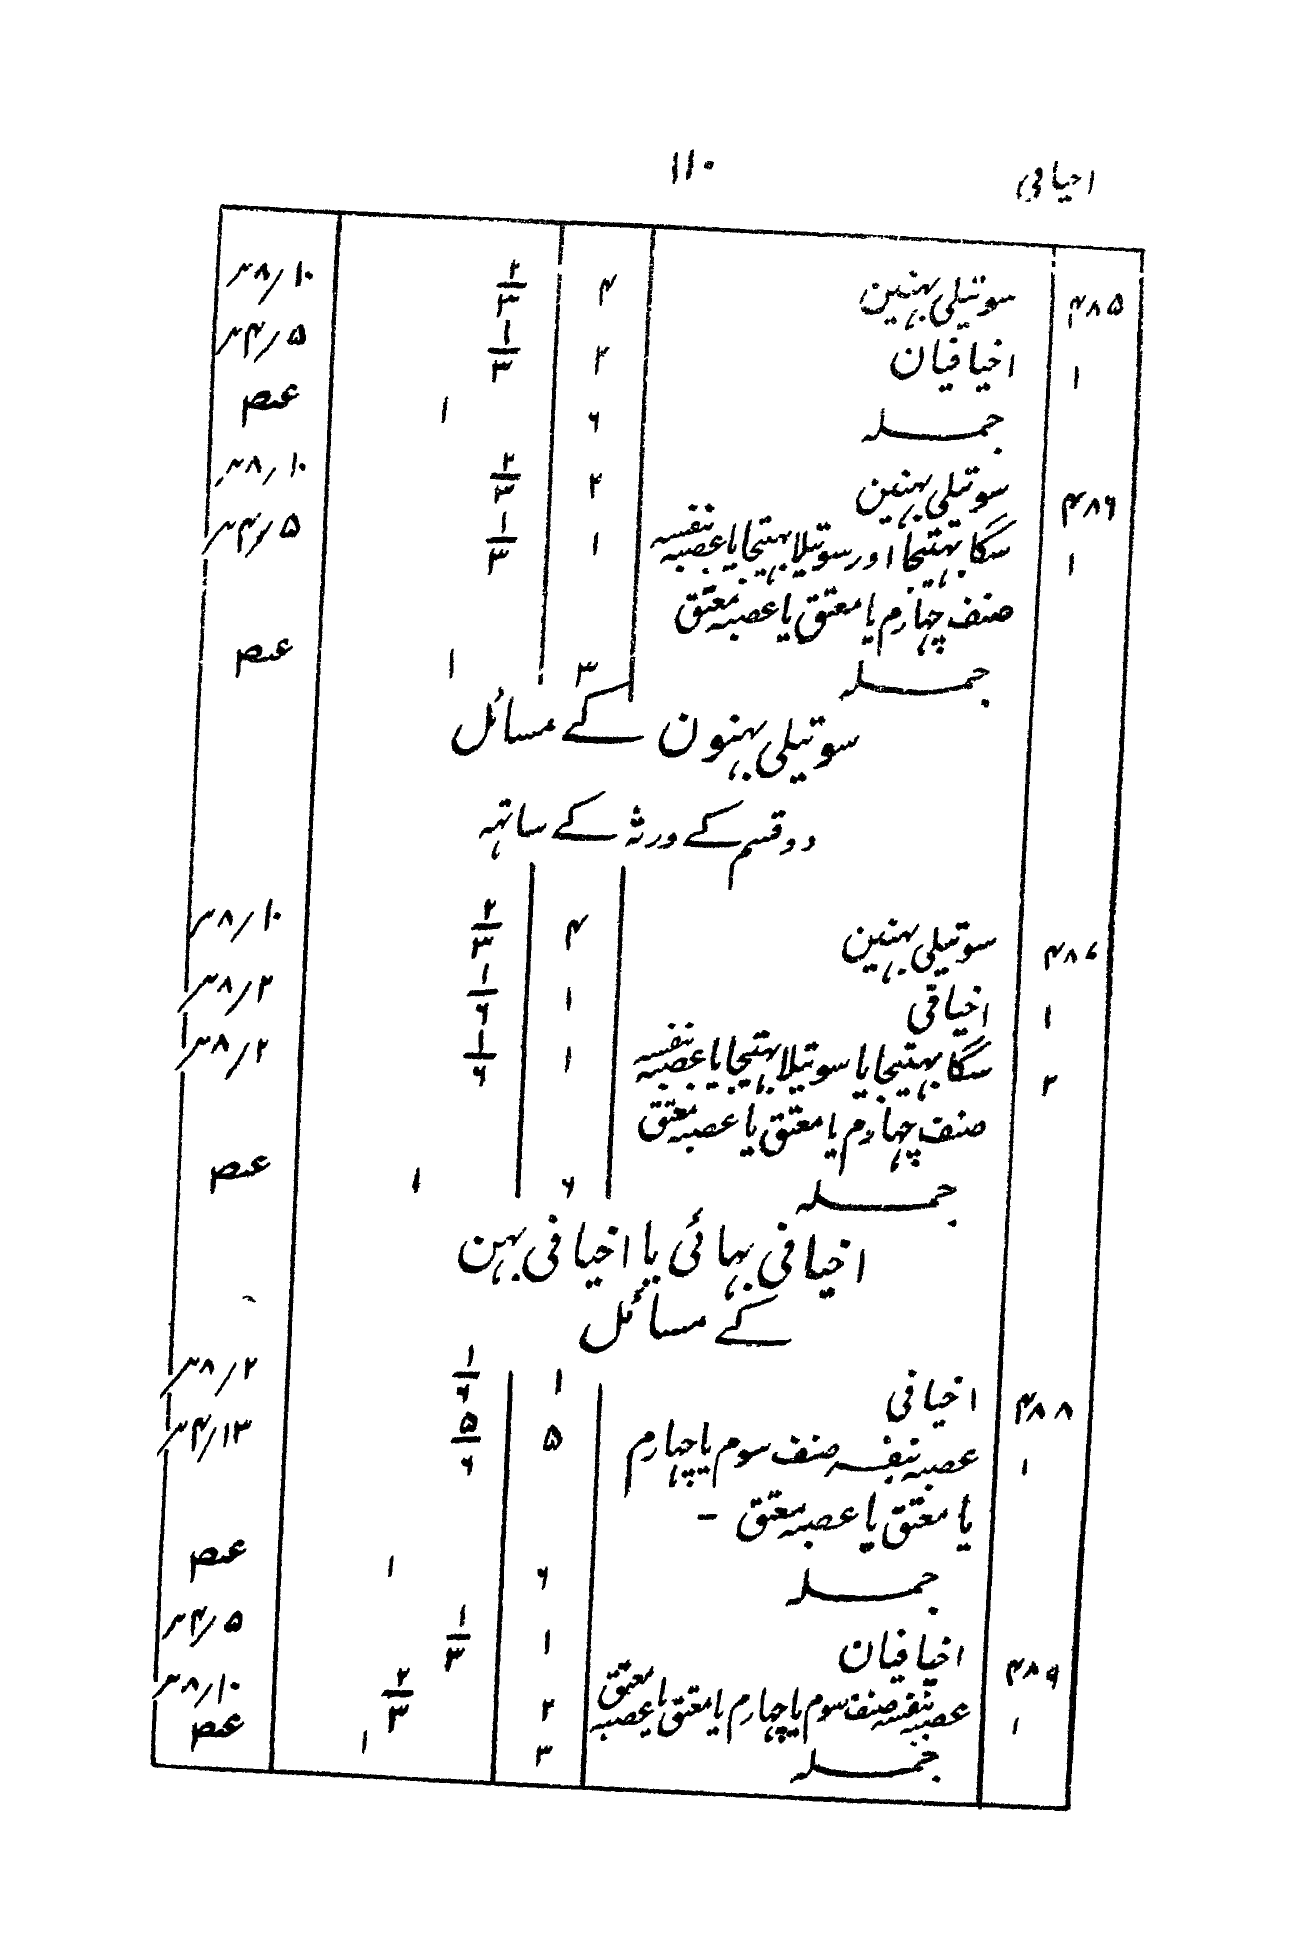 اخیافی ۱۱۰
۴۸۵ سوتیلی بہنین ۴ ۲/۳ ۱۰/۸؍
۱ اخیافیان ۲ ۱/۳ ۵/۴؍
جملہ ۶ ۱ عہ
۴۸۶ سوتیلی بہنین ۲ ۲/۳ ۱۰/۸؍
۱ سگا بہتیجا اور سوتیلا بہتیجا یا عصبہ بنفسہ ۱ ۱/۳ ۵/۴؍
صنف چہارم یا معتق یا عصبہ معتق
جملہ ۳ ۱ عہ
سوتیلی بہنون کے مسائل
دو قسم کے ورثہ کے ساتہہ
۴۸۷ سوتیلی بہنین ۴ ۲/۳ ۱۰/۸؍
۱ اخیافی ۱ ۱/۶ ۲/۸؍
۲ سگا بہتیجا یا سوتیلا بہتیجا یا عصبہ بنفسہ ۱ ۱/۶ ۲/۸؍
صنف چہارم یا معتق یا عصبہ معتق
جملہ ۶ ۱ عہ
اخیافی بہائی یا اخیافی بہن
کے مسائل
۴۸۸ اخیافی ۱ ۱/۶ ۲/۸؍
۱ عصبہ بنفسہ صنف سوم یا چہارم ۵ ۵/۶ ۱۳/۴؍
یا معتق یا عصبہ معتق -
جملہ ۶ ۱ عہ
۴۸۹ اخیافیان ۱ ۱/۳ ۵/۴؍
۱ عصبہ بنفسہ صنف سوم یا چہارم یا معتق یا عصبہ معتق ۲ ۲/۳ ۱۰/۸؍
جملہ ۳ ۱ عہ